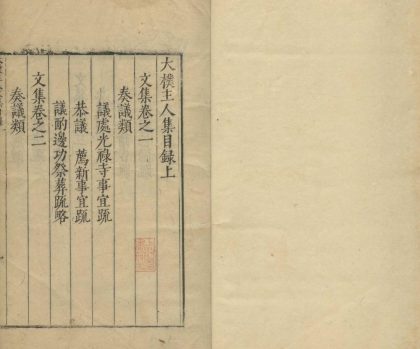 大樸主人集目録上
文集卷之一
奏議類
議處光祿寺事宜疏
恭議 薦新事宜疏
議酌邊功祭葬疏略
文集卷之二
奏議類